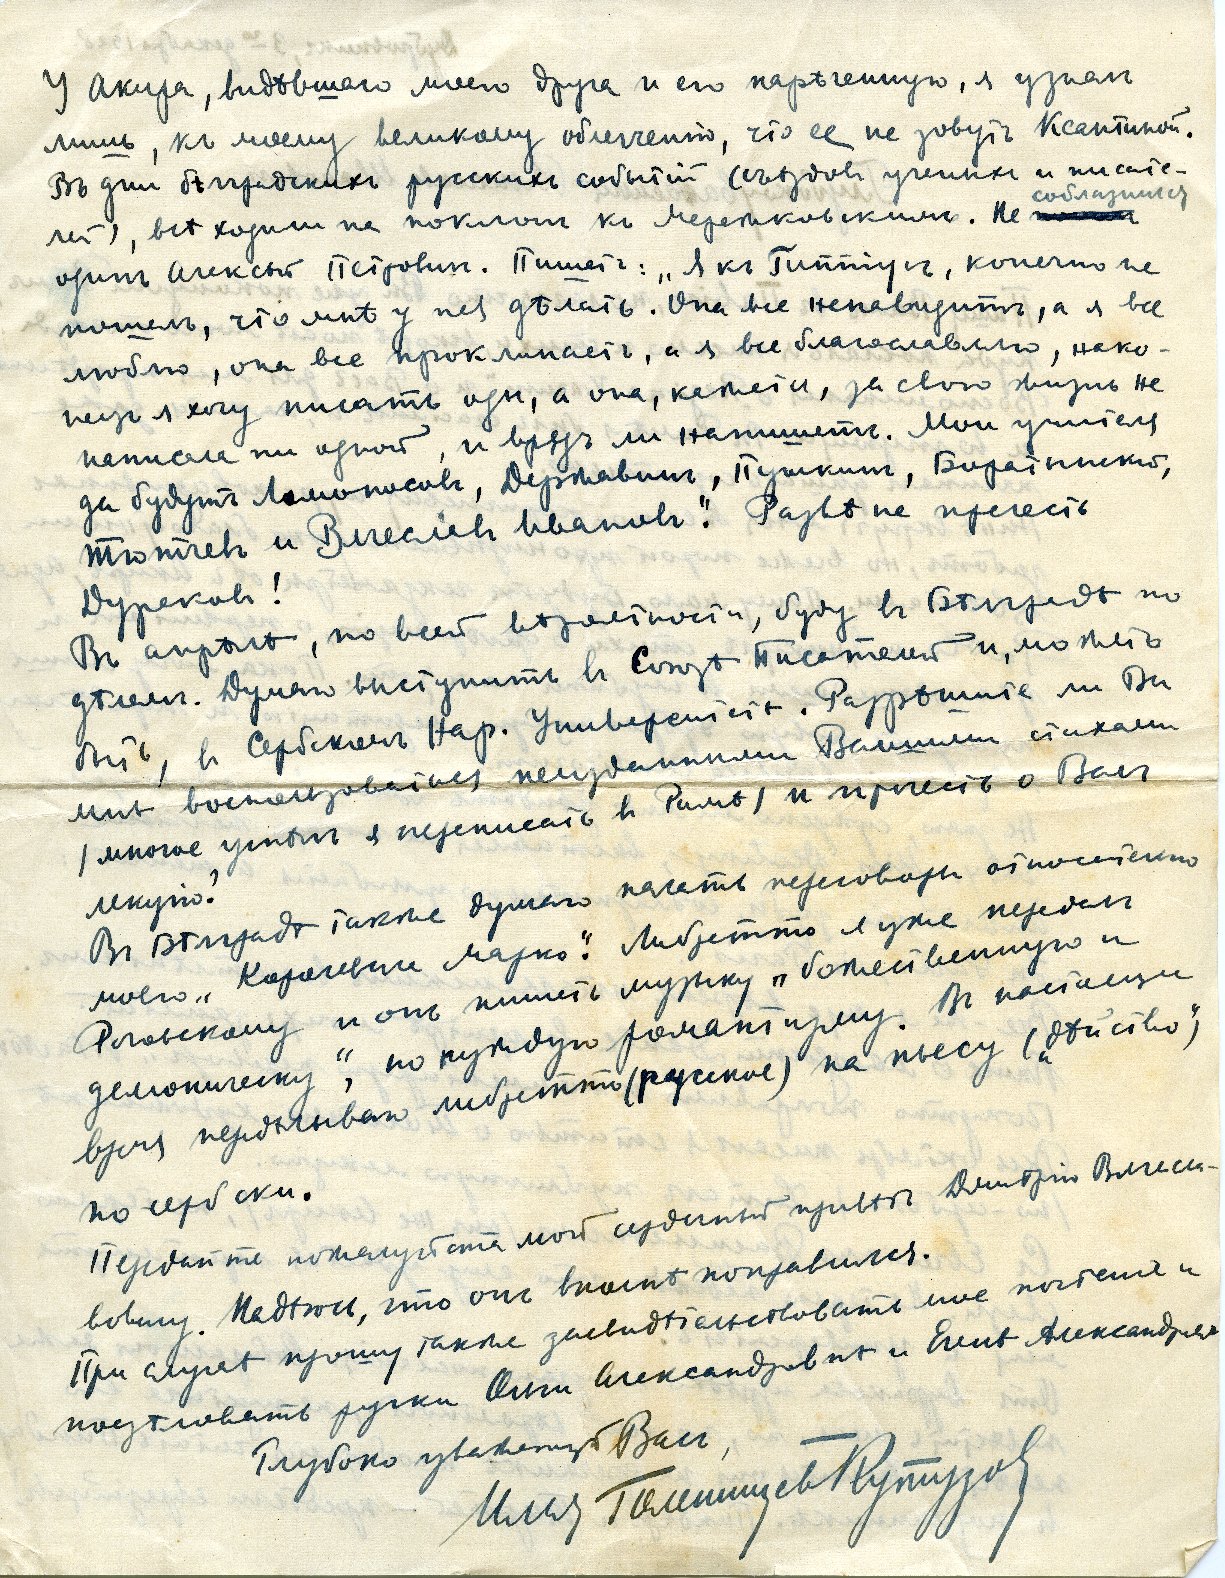 У Акира, видѣвшаго моего друга и его нарѣченную, я узналъ
лишь, къ моему великому облегченію, что ее не зовутъ Ксантиной.
Въ дни бѣлградскихъ русскихъ событій (съѣздовъ ученыхъ и писате-
лей), всѣ ходили на поклонъ къ Мережковскимъ. Не соблазнился
одинъ Алексѣй Петровичъ. Пишетъ: „Я къ Гиппіусъ, конечно не
пошелъ, что мнѣ у нея дѣлать. Она все ненавидитъ, а я все
люблю, она все проклинаетъ, а я все благославляю, нако-
нецъ я хочу писать оды, а она, кажется, за свою жизнь не
написала ни одной, и врядъ ли напишетъ. Мои учителя
да будутъ Ломоносовъ, Державинъ, Пушкинъ, Боратынскій,
Тютчевъ и Вячеславъ Ивановъ". Развѣ не прелесть
Дураковъ!
Въ апрѣлѣ, по всей вѣроятности, буду въ Бѣлградѣ по
дѣламъ. Думаю выступить въ Союзѣ Писателей и, можетъ
быть, въ Сербскомъ Нар. Университетѣ. Разрѣшите ли Вы
мнѣ воспользоваться неизданными Вашими стихами
(многое успѣлъ я переписать въ Римѣ) и прочесть о Васъ
лекцію?
Въ Бѣлградѣ также думаю начать переговоры относительно
моего „Королевича Марко". Либретто я уже передалъ
Роговскому и онъ пишетъ музыку „божественную и
демоническую", но чуждую романтизму. Въ настоящее
время передѣлываю либретто (русское) на пьесу („дѣйство")
по сербски.
Передайте пожалуйста мой сердечный привѣтъ Дмитрію Вячесла-
вовичу. Надѣюсь, что онъ вполнѣ поправился.
При случаѣ прошу также засвидѣтельствовать мое почтеніе и
поцѣловать ручки Ольги Александровнѣ и Еленѣ Александровнѣ
Глубоко уважающій Васъ,
Илья Голенищевъ-Кутузовъ